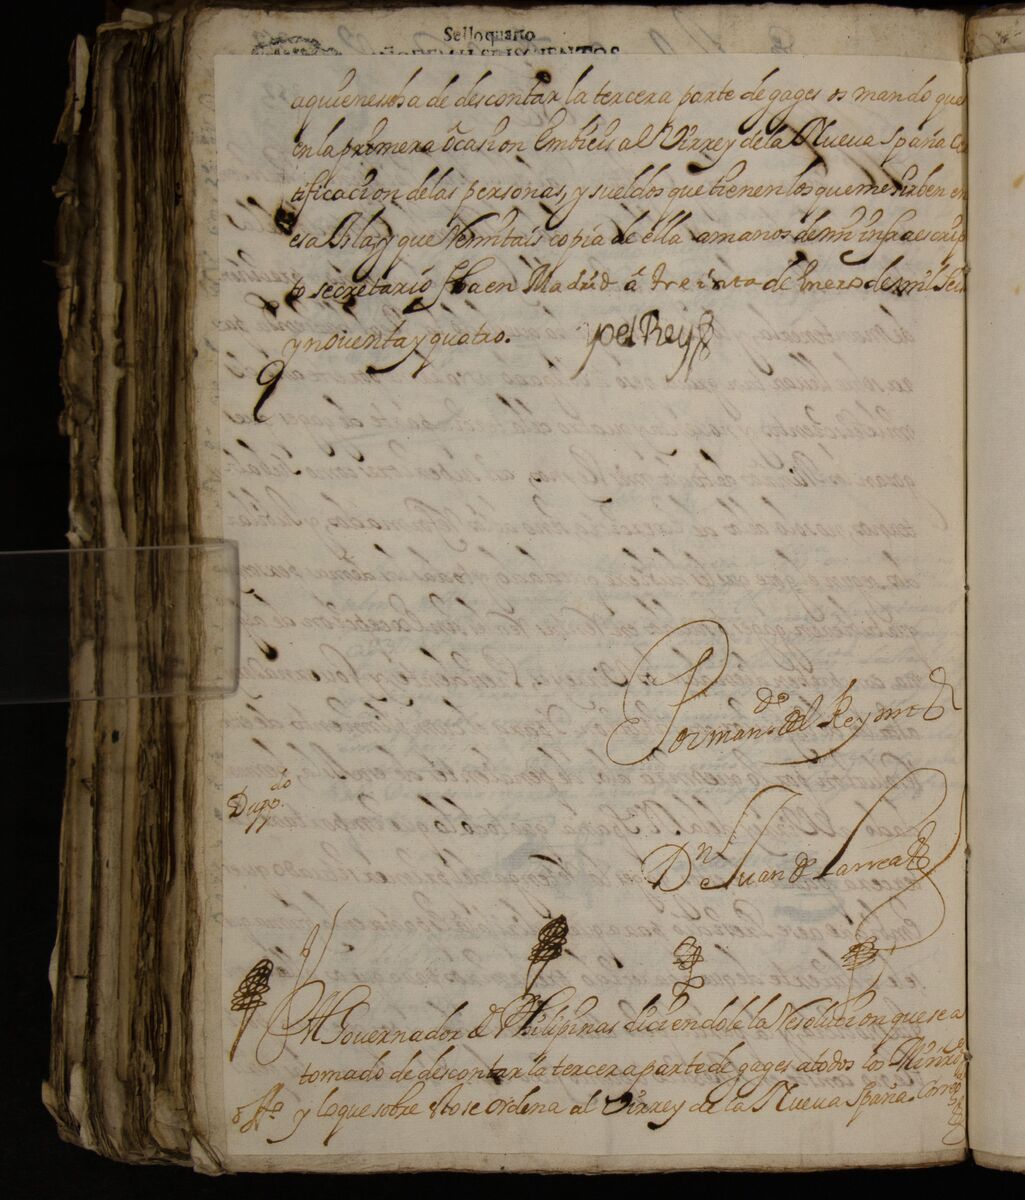 Sello quarto
a quienes seha de descontar la tercera parte de gages os mando que
en la primera ocasion embieis al Virrey de la Nueva España Cer
tificacion de las personas, y sueldos que tienen los que me sirben en
esa Isla, y que Remitais copia de ella a manos de mi infraescrip
to secretario fha en Madrid a treinta de Enero de mil seis
y noventa y quatro.
yo el Rey
Por mando del Rey nro s
Dupdo
Dn Juan de Larrea
Al Governador de Philipinas diciendole la Resolucion que se a
tomado de descontar la tercera parte de gages a todos los Minros
y lo que sobre esto se ordena al Virrey de la Nueva España. Corregdo